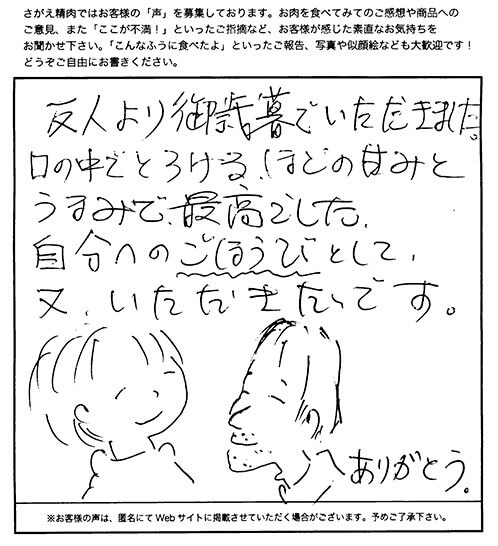 さがえ精肉ではお客様の「声」を募集しております。お肉を食べてみてのご感想や商品への
ご意見、また「ここが不満！」といったご指摘など、お客様が感じた素直なお気持ちを
お聞かせ下さい。「こんなふうに食べたよ」といったご報告、写真や似顔絵なども大歓迎です！
どうぞご自由にお書きください。
友人より御歳暮でいただきました。
口の中でとろける、ほどの甘みと
うまみで、最高でした。
自分へのごほうびとして、
又、いただきたいです。
ありがとう。
※お客様の声は、匿名にてWebサイトに掲載させていただく場合がございます。予めご了承下さい。